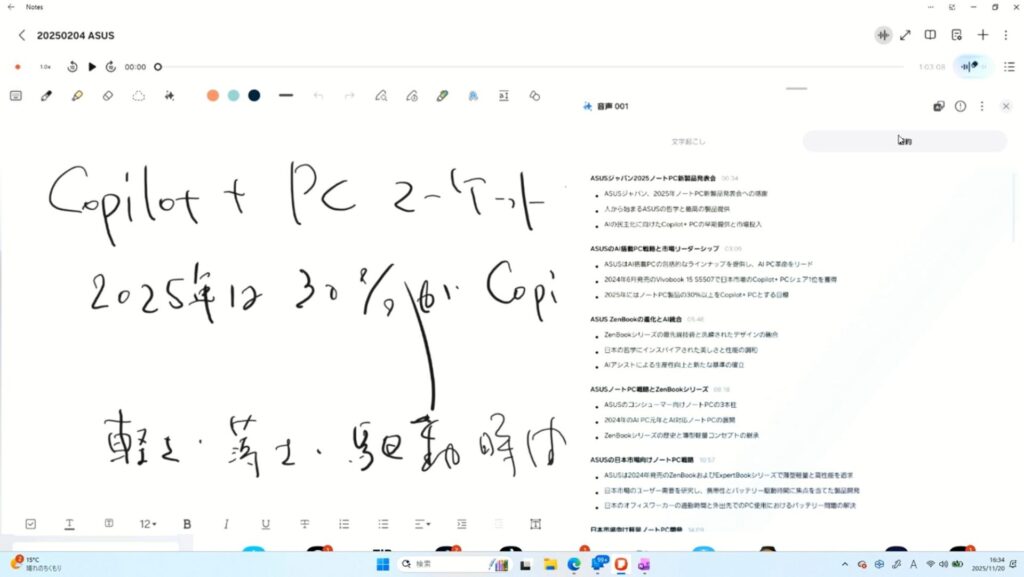 Notes
20250204 ASUS
1.0x
00:00
1:03:08
音声 001
文字起こし
Copilot + PC マーケット
2025年は 30% が Copi
軽さ・薄さ・駆動
ASUSジャパン2025ノートPC新製品発表会 00:34
ASUSジャパン、2025年ノートPC新製品発表会への感謝
人から始まるASUSの哲学と最高の製品提供
AIの民主化に向けたCopilot+ PCの早期提供と市場投入
ASUSのAI搭載PC戦略と市場リーダーシップ 03:09
ASUSはAI搭載PCの包括的なラインナップを提供し、AI PC革命をリード
2024年6月発売のVivobook 15 S5507で日本市場のCopilot+ PCシェア1位を獲得
2025年にはノートPC製品の30%以上をCopilot+ PCとする目標
ASUS ZenBookの進化とAI統合 05:48
ZenBookシリーズの最先端技術と洗練されたデザインの融合
日本の哲学にインスパイアされた美しさと性能の調和
AIアシストによる生産性向上と新たな基準の確立
ASUSノートPC戦略とZenBookシリーズ 08:18
ASUSのコンシューマー向けノートPCの3本柱
2024年のAI PC元年とAI対応ノートPCの展開
ZenBookシリーズの歴史と薄型軽量コンセプトの継承
ASUSの日本市場向けノートPC戦略 10:57
ASUSは2024年発売のZenBookおよびExpertBookシリーズで薄型軽量と高性能を追求
日本市場のユーザー需要を研究し、携帯性とバッテリー駆動時間に焦点を当てた製品開発
日本のオフィスワーカーの通勤時間と外出先でのPC使用におけるバッテリー問題の解決
日本市場向け軽量ノートPC開発 14:09
12
B I U T
15°C
晴れのちくもり
検索
99+
A
16:34
2025/11/20